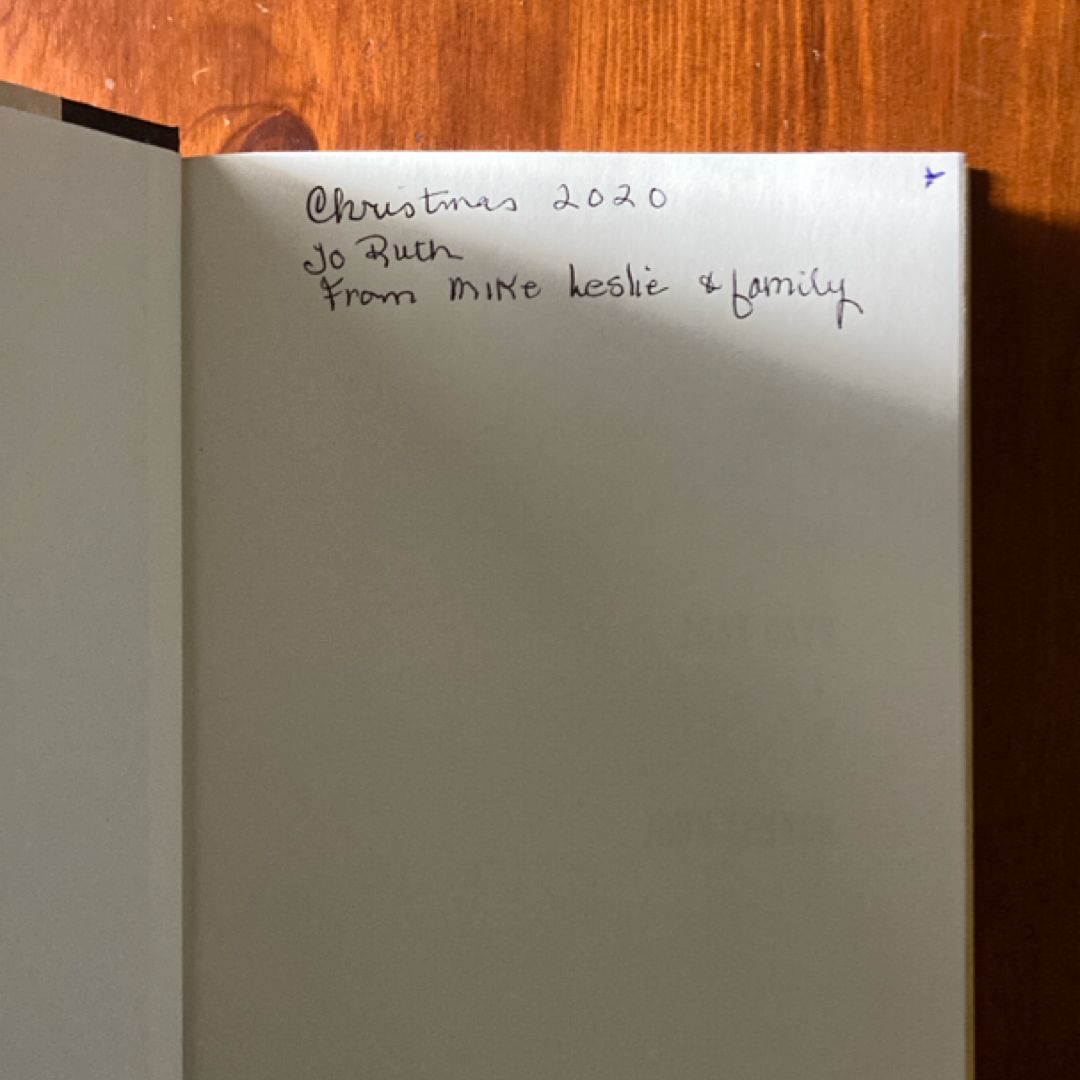 Christmas 2020
To Ruth
From Mike Leslie & family